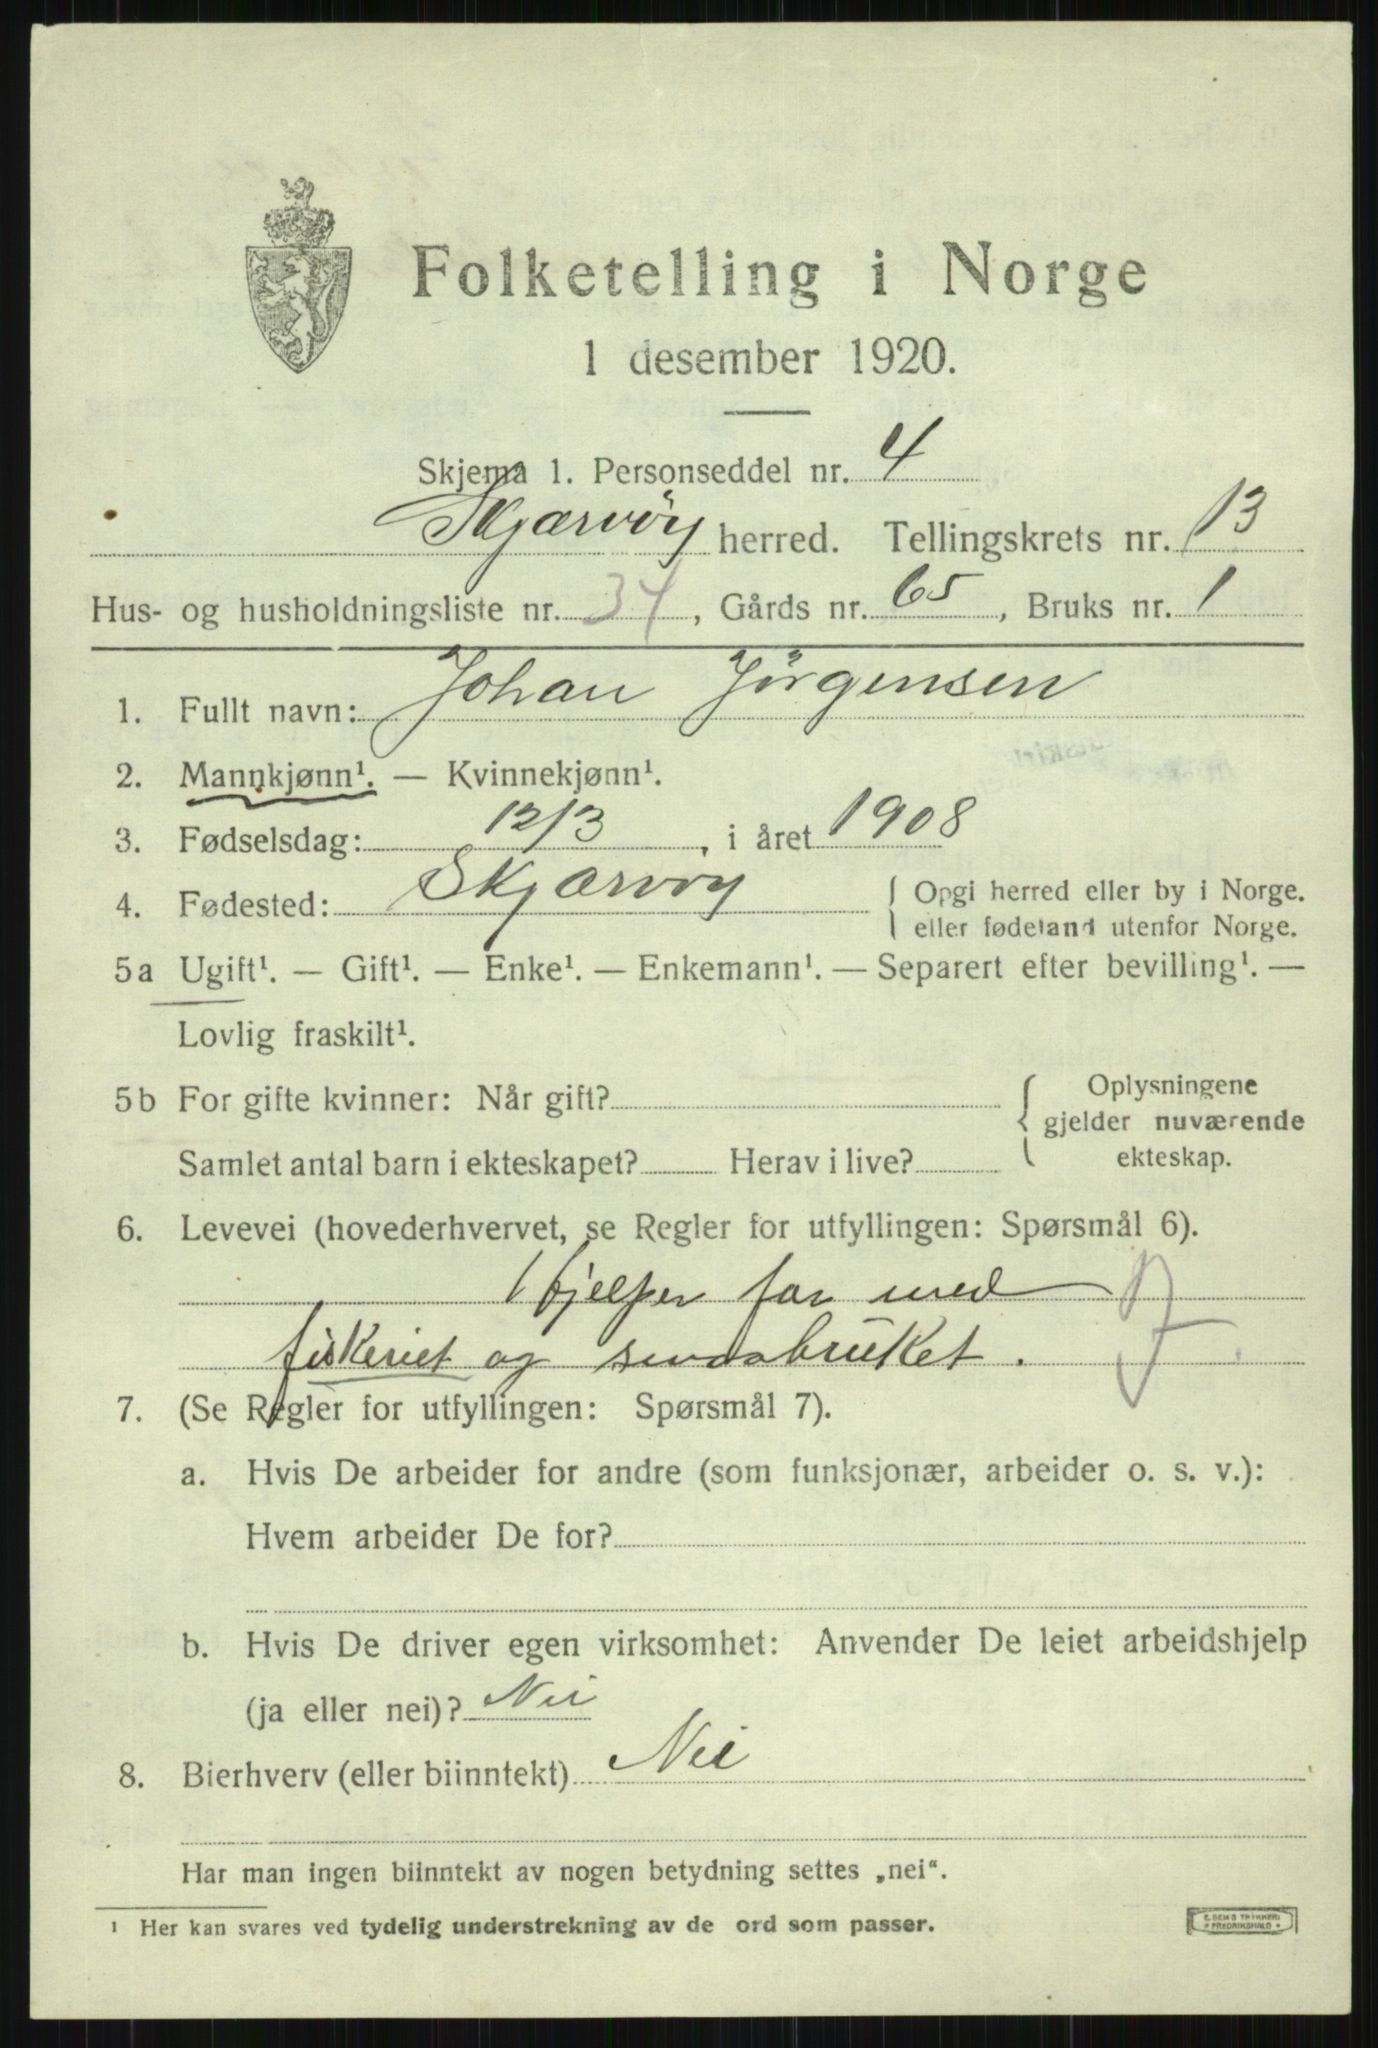 Folketelling i Norge
1 desember 1920.
Skjema 1. Personseddel nr. 4
Skjærvöy herred. Tellingskrets nr. 13
Hus- og husholdningsliste nr. 34, Gårds nr. 65, Bruks nr. 1
1. Fullt navn: Johan Jörgensen
2. Mannkjønn¹. — Kvinnekjønn¹.
3. Fødselsdag: 12/3, i året 1908
4. Fødested: Skjærvöy { Opgi herred eller by i Norge.
eller fødeland utenfor Norge.
5a Ugift¹. — Gift¹. — Enke¹. — Enkemann¹. — Separert efter bevilling¹. —
Lovlig fraskilt¹.
5b For gifte kvinner: Når gift? { Oplysningene
gjelder nuværende
Samlet antal barn i ekteskapet? Herav i live? ekteskap.
6. Levevei (hovederhvervet, se Regler for utfyllingen: Spørsmål 6).
Hjelper far med
fiskeriet og smaabruket.
7. (Se Regler for utfyllingen: Spørsmål 7).
a. Hvis De arbeider for andre (som funksjonær, arbeider o. s. v.):
Hvem arbeider De for?
b. Hvis De driver egen virksomhet: Anvender De leiet arbeidshjelp
(ja eller nei)? Nei
8. Bierhverv (eller biinntekt) Nei
Har man ingen biinntekt av nogen betydning settes „nei“.
¹ Her kan svares ved tydelig understrekning av de ord som passer.